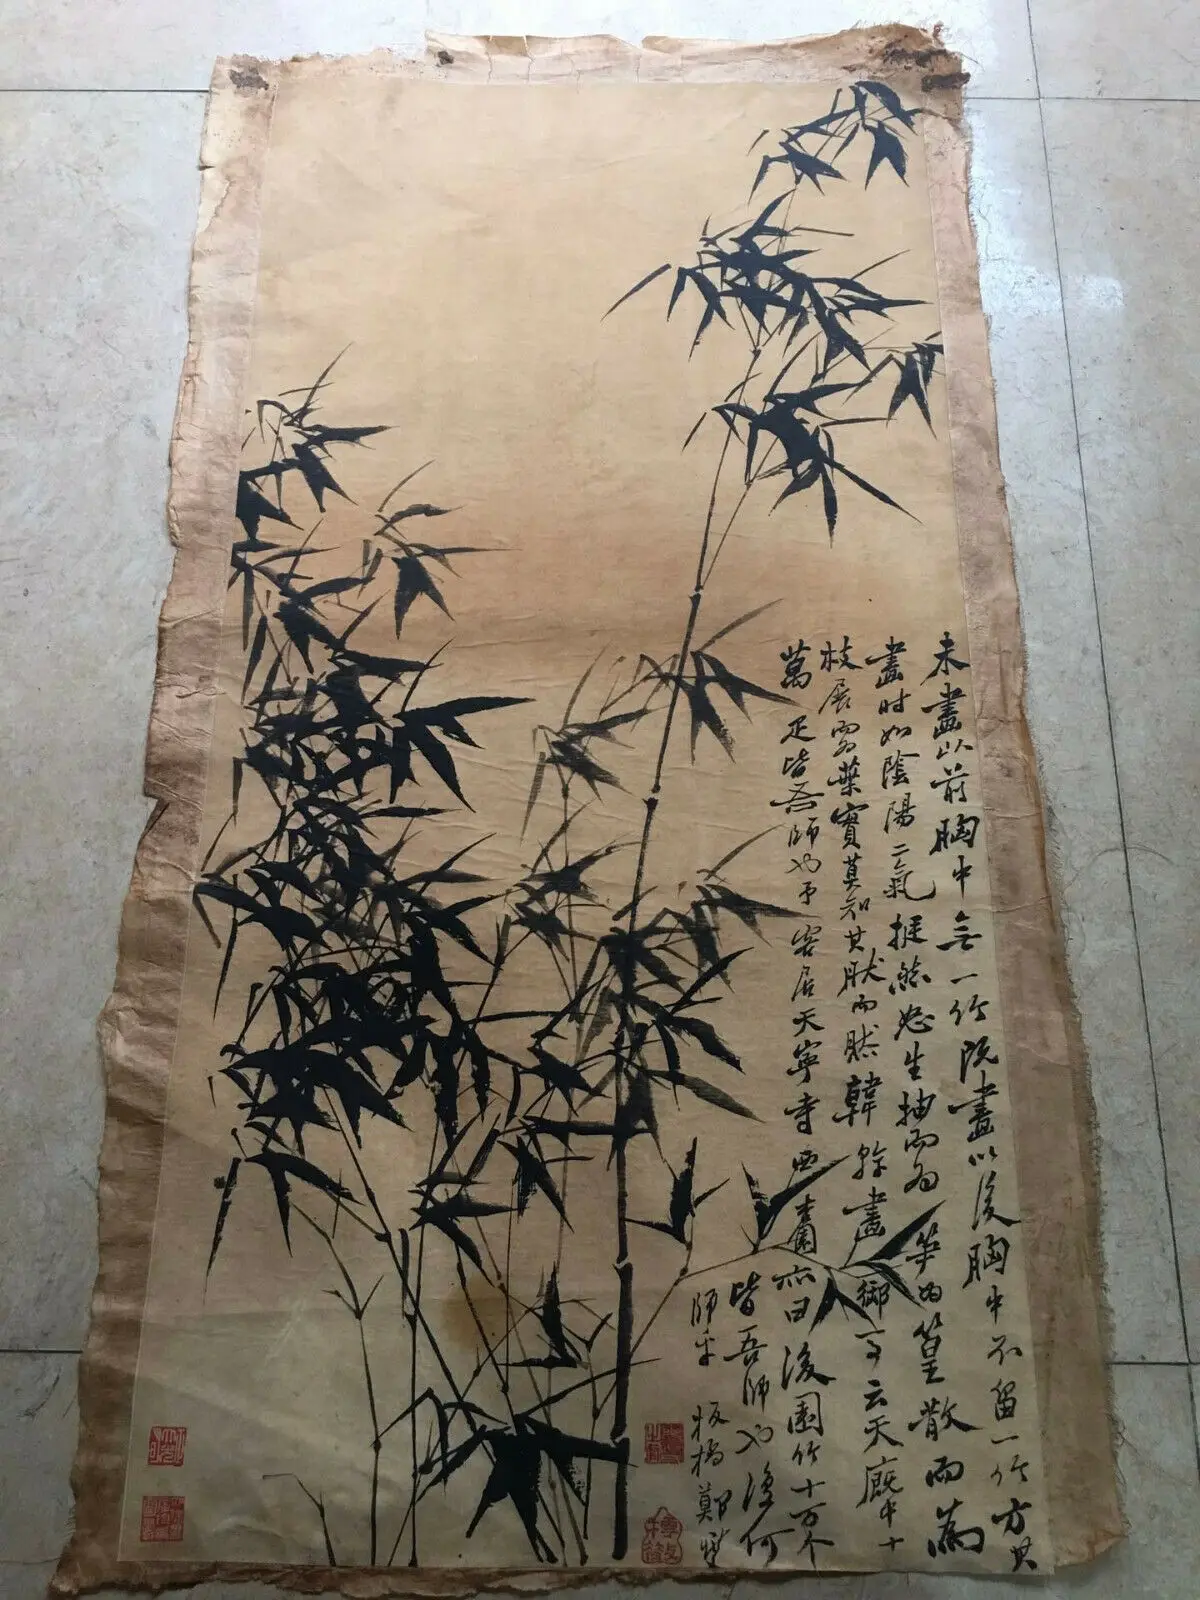 未畫以前胸中無一竹既畫以後胸中不留一竹方其
畫时如陰陽二氣挺然怒生抽而為笋為篁散而為
枝展而為葉實莫知其然而然韓幹畫御馬云天廐中十
萬疋皆吾師也予客居天寧寺西園亦曰後園竹十万个
皆吾師也復何
師乎 板橋鄭燮